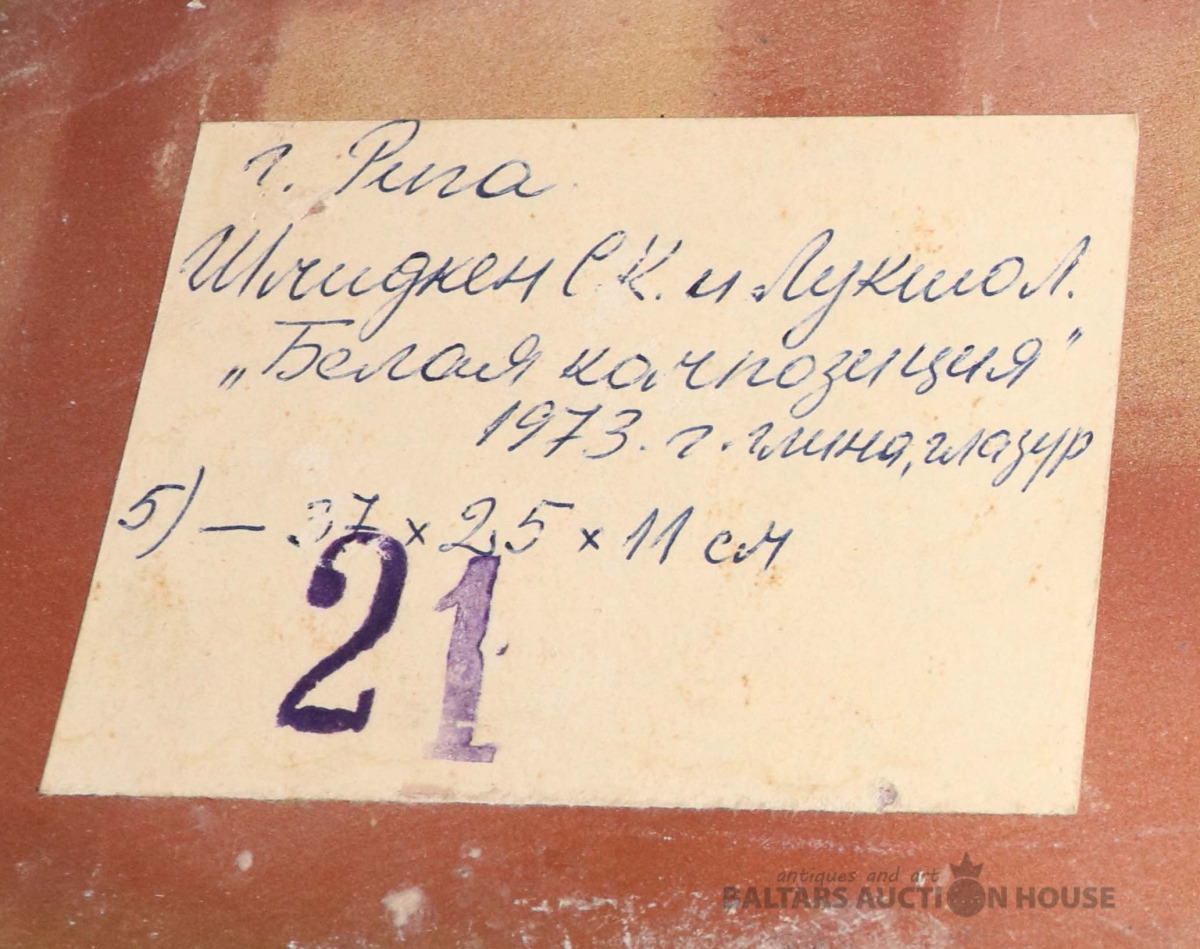 г. Рига
Шмидкен С.К. и Лукшо Л.
„Белая композиция"
1973. г. глина, глазур
5) — 37 × 25 × 11 см
21
antiques and art
BALTARS AUCTION HOUSE